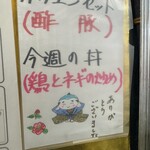 セット
(酢豚)
今週の丼
(鶏とネギのためめ)
ありが
とう
ございました